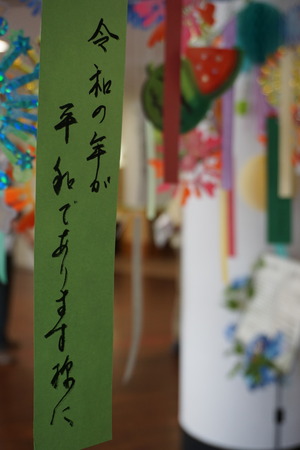 令和の年が
平和であります様に